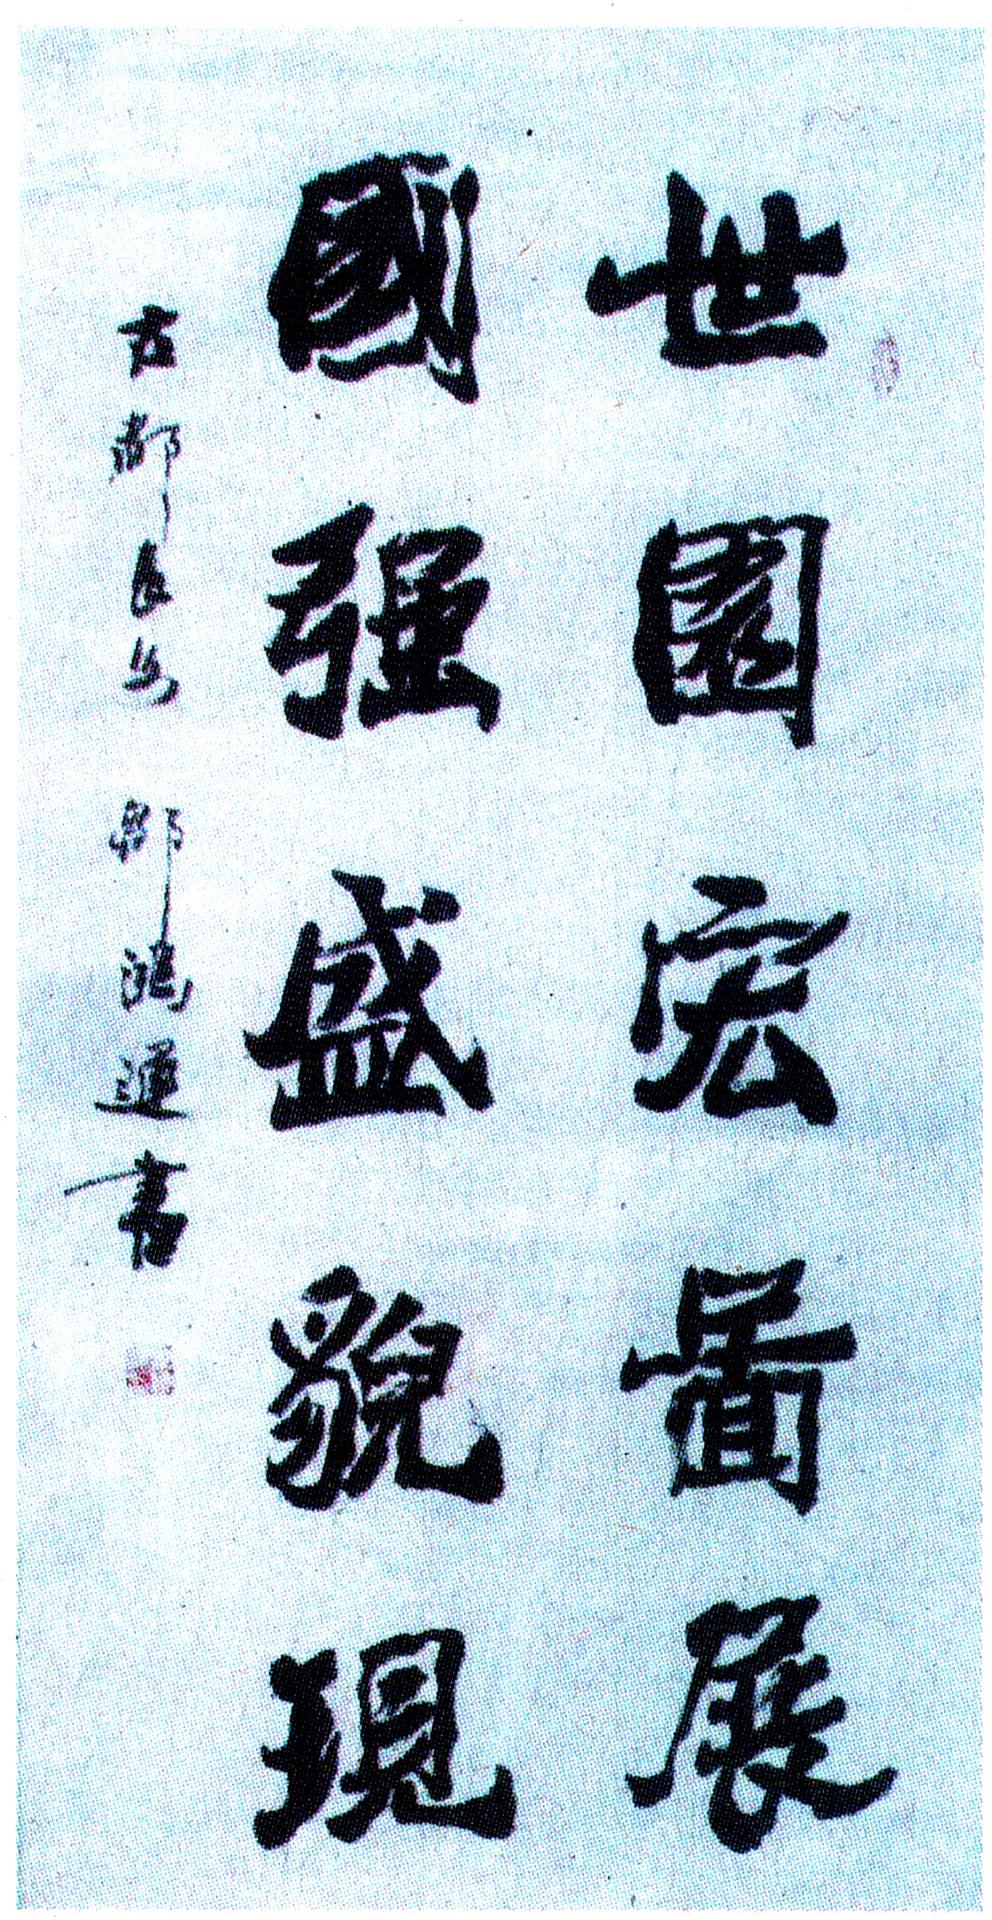 世園宏啚展
國强盛貌現
古都長安 鴻運書